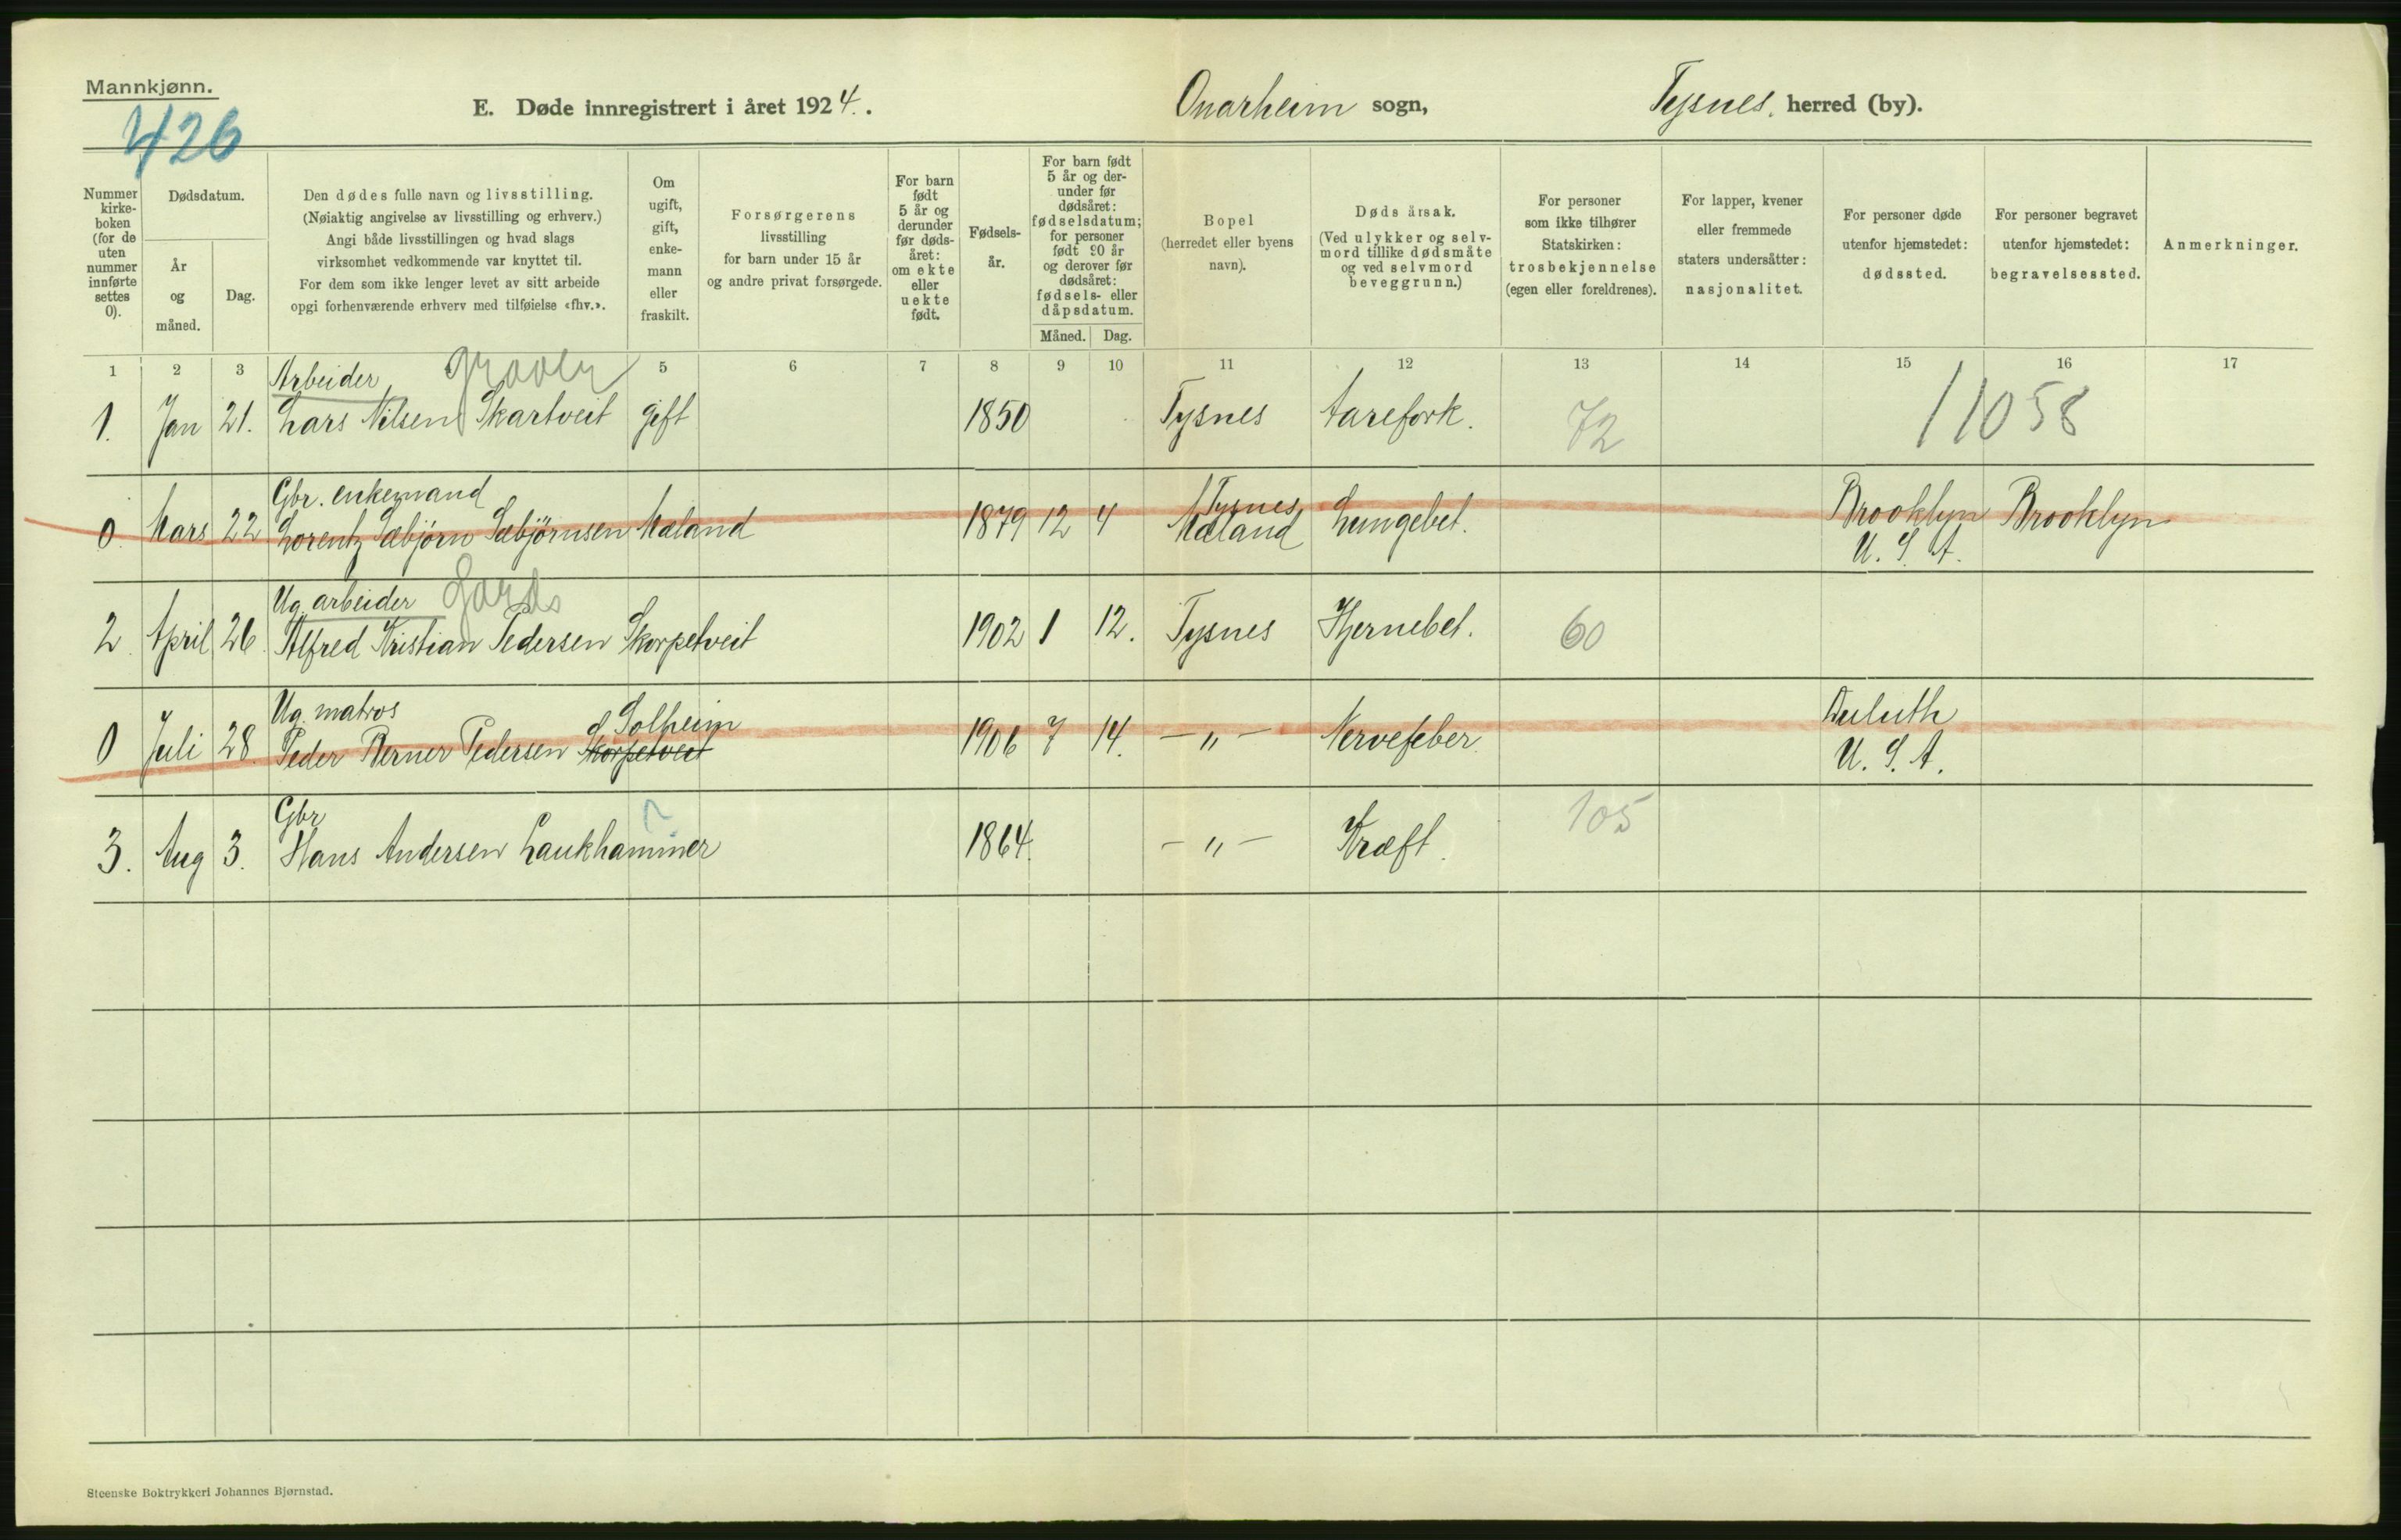 Mannkjønn.
426
E. Døde innregistrert i året 1924.
Onarheim sogn, Tysnes, herred (by).
Nummer kirke- boken (for de uten nummer innførte settes 0).
Dødsdatum.
År og måned.
Dag.
Den dødes fulle navn og livsstilling.
(Nøiaktig angivelse av livsstilling og erhverv.)
Angi både livsstillingen og hvad slags
virksomhet vedkommende var knyttet til.
For dem som ikke lenger levet av sitt arbeide
opgi forhenværende erhverv med tilføielse «fhv.».
Om ugift, gift, enke- mann eller fraskilt.
Forsørgerens
livsstilling
for barn under 15 år
og andre privat forsørgede.
For barn født 5 år og derunder før døds- året: om ekte eller uekte født.
Fødsels- år.
For barn født 5 år og der- under før dødsåret: fødselsdatum; for personer født 90 år og derover før dødsåret: fødsels- eller dåpsdatum.
Måned. Dag.
Bopel
(herredet eller byens
navn).
Dødsårsak.
(Ved ulykker og selv-
mord tillike dødsmåte
og ved selvmord
beveggrunn.)
For personer
som ikke tilhører
Statskirken:
trosbekjennelse
(egen eller foreldrenes).
For lapper, kvener
eller fremmede
staters undersåtter:
nasjonalitet.
For personer døde
utenfor hjemstedet:
dødssted.
For personer begravet
utenfor hjemstedet:
begravelsessted.
Anmerkninger.
1 2 3 5 6 7 8 9 10 11 12 13 14 15 16 17
Arbeider
1. Jan 21. Lars Nilsen Skartveit gift 1850 Tysnes Aarefork. 72 11058
Gbr. enkemand
0. Mars 22 Lorentz Sæbjørn Sæbjörnsen Mæland 1879 12 4 Tysnes Mæland Lungebet. Brooklyn U. S. A. Brooklyn
Ug. arbeider Gards
2. April 26. Alfred Kristian Pedersen Skorpetveit 1902 1 12. Tysnes Hjernebet. 60
Ug. matros Solheim
0 Juli 28. Peder Berner Pedersen Skorpetveit 1906 7 14. – " – Nervefeber. Duluth U. S. A.
Gbr
3. Aug 3. Hans Andersen Laukhammer 1864. – " – Kræft. 105
Steenske Boktrykkeri Johannes Bjørnstad.